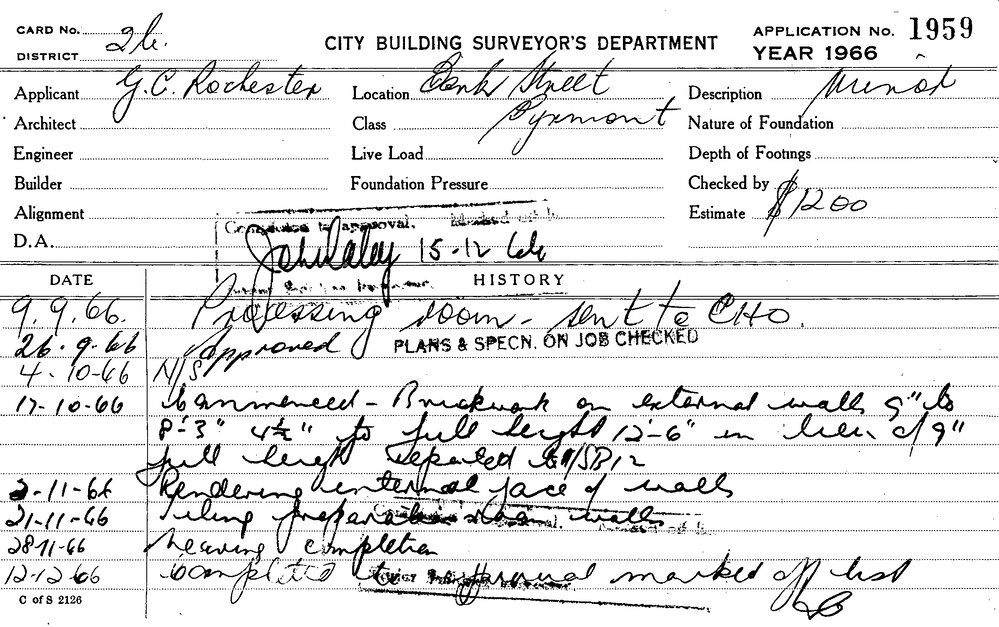 CARD No.
DISTRICT 26.
CITY BUILDING SURVEYOR'S DEPARTMENT
APPLICATION No. 1959
YEAR 1966
Applicant G.C. Rochester
Location Bank Street
Description Minor
Architect
Class Pyrmont
Nature of Foundation
Engineer
Live Load
Depth of Footings
Builder
Foundation Pressure
Checked by
Alignment
Estimate $1200
D.A.
Completed to approval. Marked off
John Daley 15-12 66
DATE HISTORY
9.9.66. Processing room - sent to CHO.
26.9.66 Approved PLANS & SPECN. ON JOB CHECKED
4-10-66 N/S
17-10-66 Commenced - Brickwork on external walls 9" to
8'-3" 4½" to full height 12'-6" in lieu of 9"
full height reported to
2-11-66 Rendering internal face of walls
21-11-66 Tiling preparation room walls
28-11-66 Nearing completion
12-12-66 Completed to approval marked off list
C of S 2126